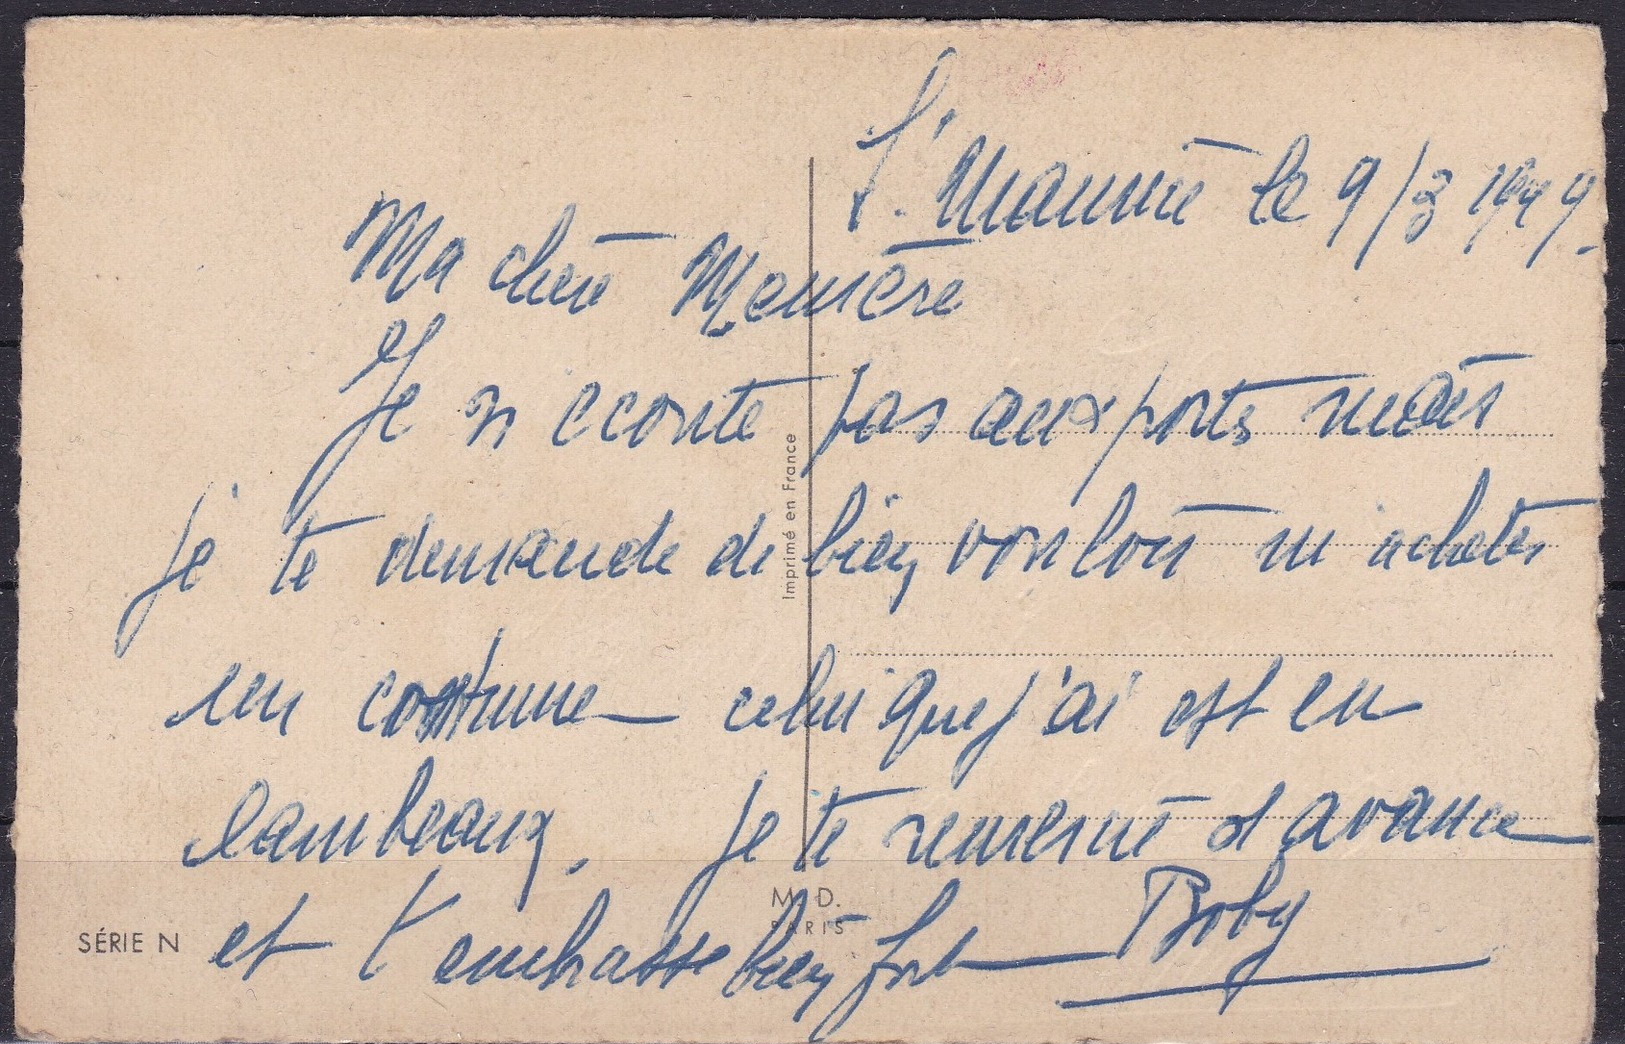 St. Maurice le 9/3 1949.
Ma chère Memère
Je n écoute pas aux portes mais
je te demande de bien vouloir m acheter
un costume celui que j'ai est en
lambeaux. Je te remercie d avance
et t'embrasse bien fort Boby
Imprimé en France
M. D.
PARIS
SÉRIE N